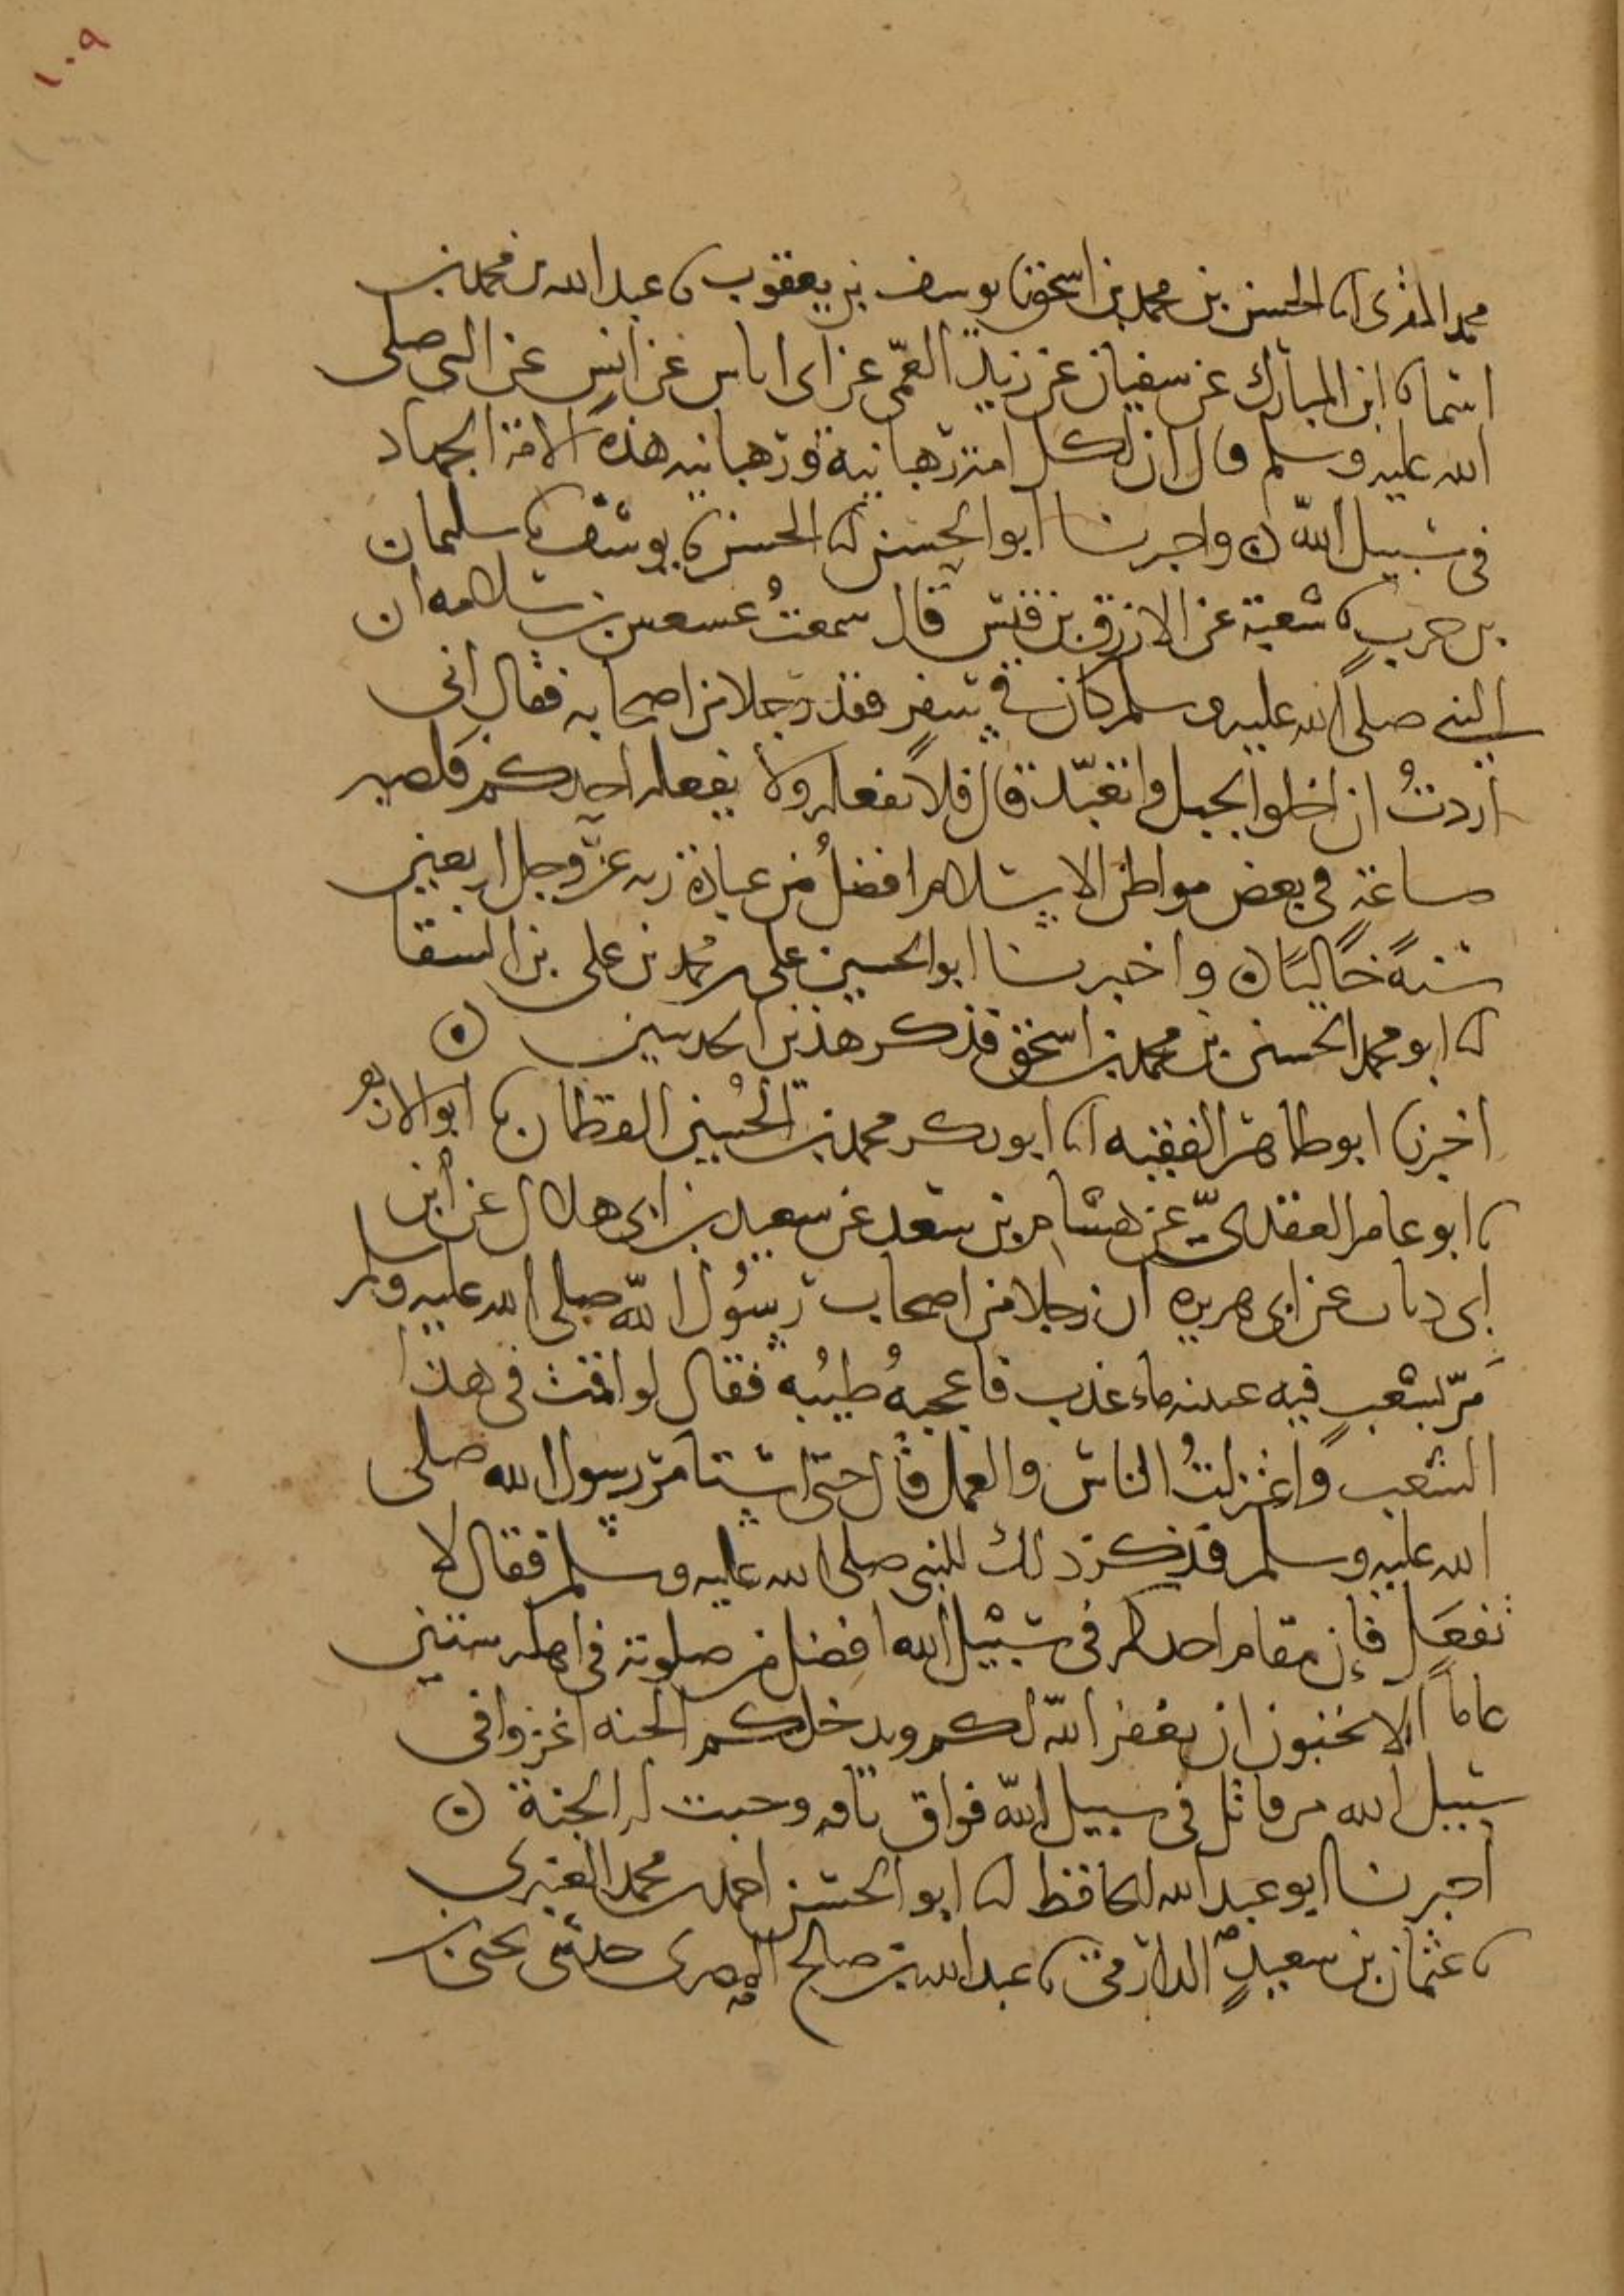 ١٠٩
محمد المقرى انا الحسن بن محمد بن اسحق نا يوسف بن يعقوب نا عبد الله بن محمد بن
اسما نا ابن المبارك عن سفيان عن زيد العمى عن ابى اياس عن انس عن النبى صلى
الله عليه وسلم قال ان لكل امة رهبانية ورهبانيه هذه الامة الجهاد
فى سبيل الله ن واخبرنا ابو الحسن انا الحسن نا يوسف نا سليمان
بن حرب نا شعبة عن الازرق بن قيس قال سمعتُ عسعس بن سلامه ان
النبى صلى الله عليه وسلم كان فى سفرٍ ففقد رجلا من اصحابه فقال انى
اردتُ ان اخلوا بجبل واتعبّد قال فلا تفعله ولا يفعله احدكم فلصبر
ساعةٍ فى بعض مواطن الاسلام افضلُ من عبادة ربه عزّ وجل اربعين
سنةً خاليًا ن واخبرنا ابو الحسين على بن محمد بن على بن السقا
انا ابو محمد الحسن بن محمد بن اسحق فذكر هذين الحديثين ن
اخبرنا ابو طاهر الفقيه انا ابو بكر محمد بن الحُسين القطان نا ابو الازهر
نا ابو عامر العقدىّ عن هشام بن سعد عن سعيد بن ابى هلال عن ابن
ابى ذباب عن ابى هريره ان رجلا من اصحاب رسُول الله صلى الله عليه وسلم
مَرّ بشعبٍ فيه عيينه ماء عذب فاعجبهُ طيبُه فقال لو اقمت فى هذا
الشعب واعتزلتُ الناس والعمل قال حتى استامر رسول الله صلى
الله عليه وسلم فذكر ذلك للنبى صلى الله عليه وسلم فقال لا
تفعَل فإن مقام احدكم فى سبيل الله افضل من صلوته فى اهله ستين
عاماً الا تحبون ان يغفر الله لكم ويدخلكم الجنه اغزوا فى
سبيل الله من قاتل فى سبيل الله فواق ناقه وجبت له الجنة ن
اخبرنا ابو عبد الله الحافظ انا ابو الحسن احمد بن محمد العنبرى
نا عثمان بن سعيدٍ الدارمى نا عبد الله بن صالح المصرى حدثنى يحيى بن